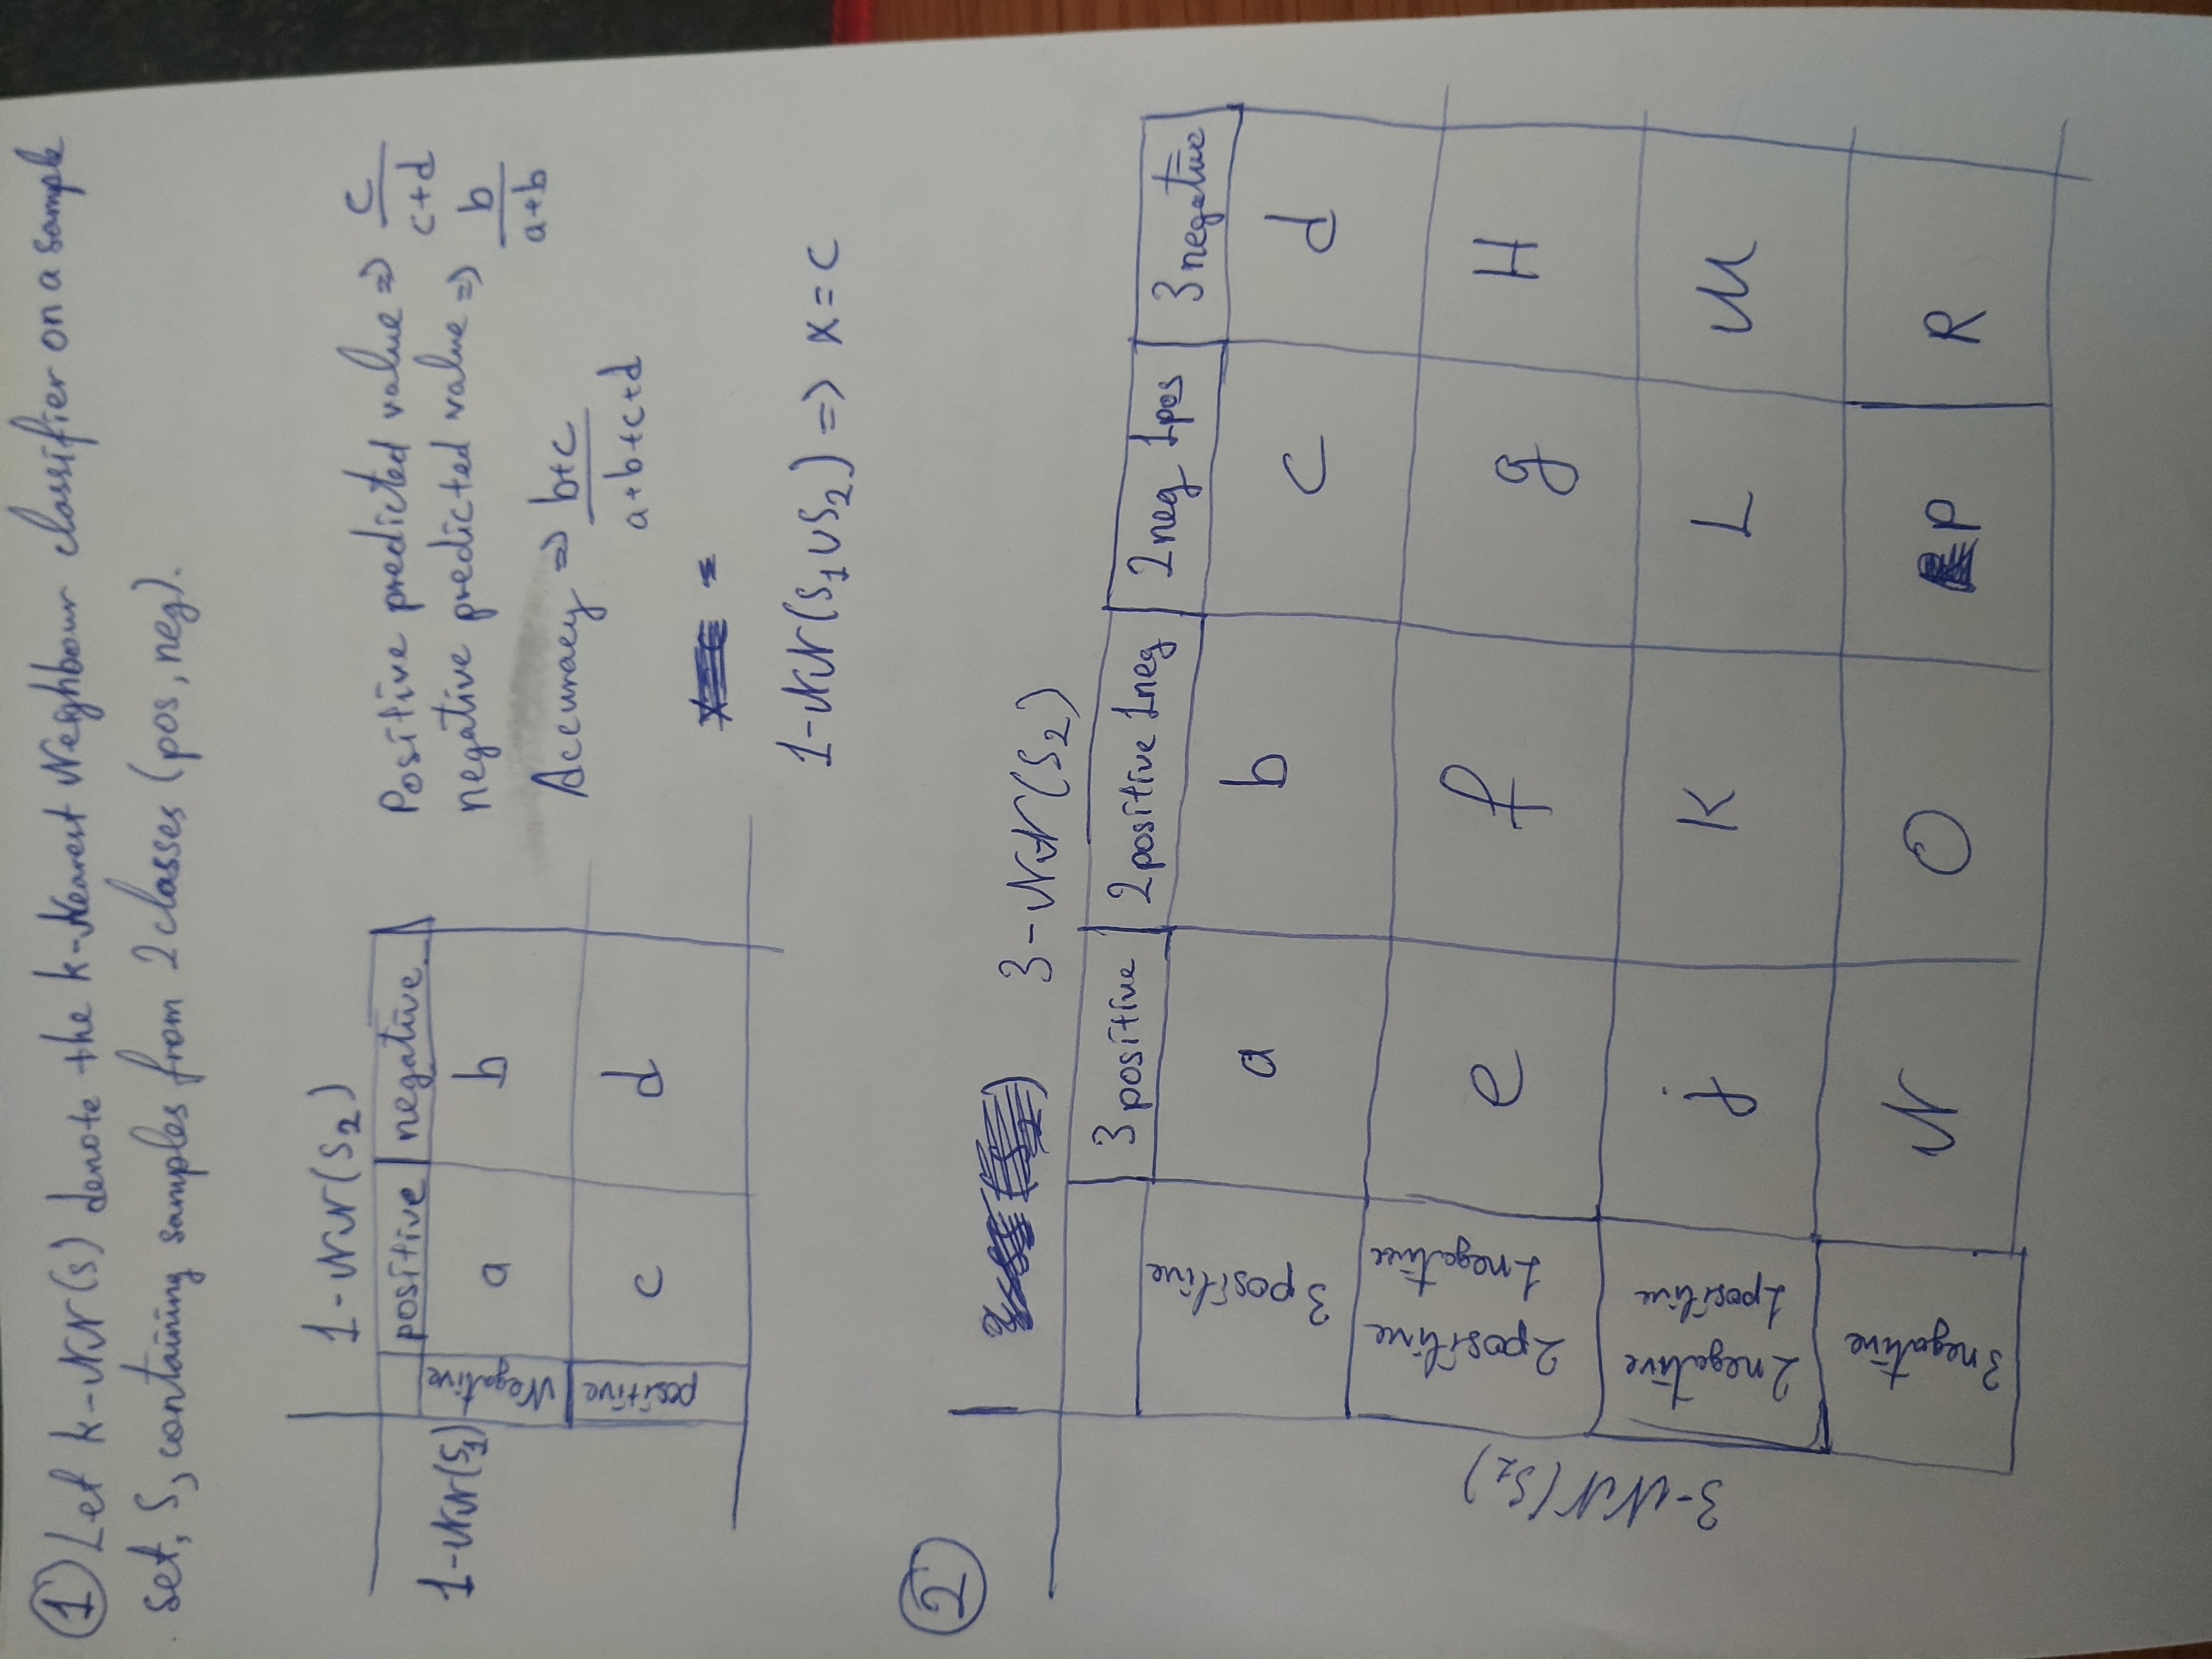 1 Let k-NN(s) denote the k-Nearest Neighbour classifier on a sample
set, S, containing samples from 2 classes (pos, neg).
1-NN(S2)
positive negative
1-NN(S1)
Negative a b
positive c d
Positive predicted value => c/c+d
negative predicted value => b/a+b
Accuracy => b+c/a+b+c+d
=
1-NN(S1 U S2) => x = c
2
3-NN(S2)
3 positive 2 positive 1 neg 2 neg 1 pos 3 negative
3-NN(S1)
3 positive a b c d
2 positive
1 negative e f g H
2 negative
1 positive j K L M
3 negative N O P R